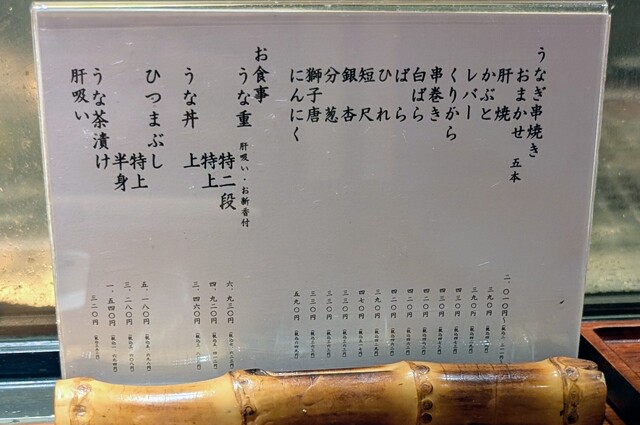 うなぎ串焼き
おまかせ 五本 二、〇一〇円
肝焼 三九〇円
かぶと 三九〇円
レバー 四三〇円
くりから 四三〇円
串巻き 四二〇円
白ばら 四二〇円
ばら 四二〇円
ひれ 三九〇円
短尺 四七〇円
銀杏 三三〇円
分葱 三三〇円
獅子唐 三三〇円
にんにく 五九〇円
お食事
うな重 肝吸い・お新香付
特二段 六、九三〇円
特上 四、九二〇円
うな丼 上 三、四六〇円
ひつまぶし 特上 五、一八〇円
半身 三、二八〇円
うな茶漬け 一、五四〇円
肝吸い 三二〇円